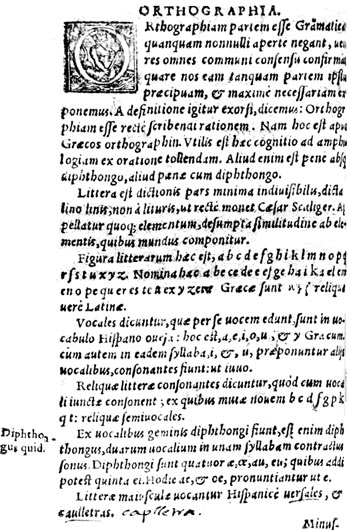 ORTHOGRAPHIA.
ORthographiam partem esse Grãmatic
quanquam nonnulli aperte negant,
res omnes communi consensu confirma
quare nos eam tanquam partem ipsiu
præcipuam, & maximè necessariam ex
ponemus. A definitione igitur exorsi, dicemus: Orthogr
phiam esse rectè scribendi rationem. Nam hoc est apu
Græcos orthographin. Vtilis est hæc cognitio ad amphi
logiam ex oratione tollendam. Aliud enim est penè absq
diphthongo, aliud pænæ cum diphthongo.
Littera est dictionis pars minima indiuisibilis, dicta
lino linis, non à lituris, ut rectè monet Cæsar Scaliger. A
pellatur quoq; elementum, desumpta similitudine ab ele
mentis, quibus mundus componitur.
Figura litterarum hæc est, a b c d e f g h i k l m n o p q
r s t u x y z. Nomina hæc a be ce de e ef ge ha i ka el em
en o pe qu er es te u ex y zeta Græcæ sunt y z reliquæ
uerè Latinæ.
Vocales dicuntur, quæ per se uocem edunt, sunt in uo
cabulo Hispano oueja: hoc est, a, e, i, o, u, & y Græcum.
cum autem in eadem syllaba, i, & u, præponuntur alijs
uocalibus, consonantes fiunt: ut iuuo.
Reliquæ litteræ consonantes dicuntur, quòd cum uoca
li iunctæ consonent; ex quibus mutæ nouem b c d f g p k
q t: reliquæ semiuocales.
Diphthon-
gus quid.
Ex uocalibus geminis diphthongi fiunt, est enim diph
thongus, duarum uocalium in unam syllabam contractus
sonus. Diphthongi sunt quatuor æ, œ, au, eu; quibus addi
potest quinta ei. Hodie æ, & œ, pronuntiantur ut e.
Litteræ maiusculæ uocantur Hispanicè uersales, &
caulletras. capletra.
Minus-